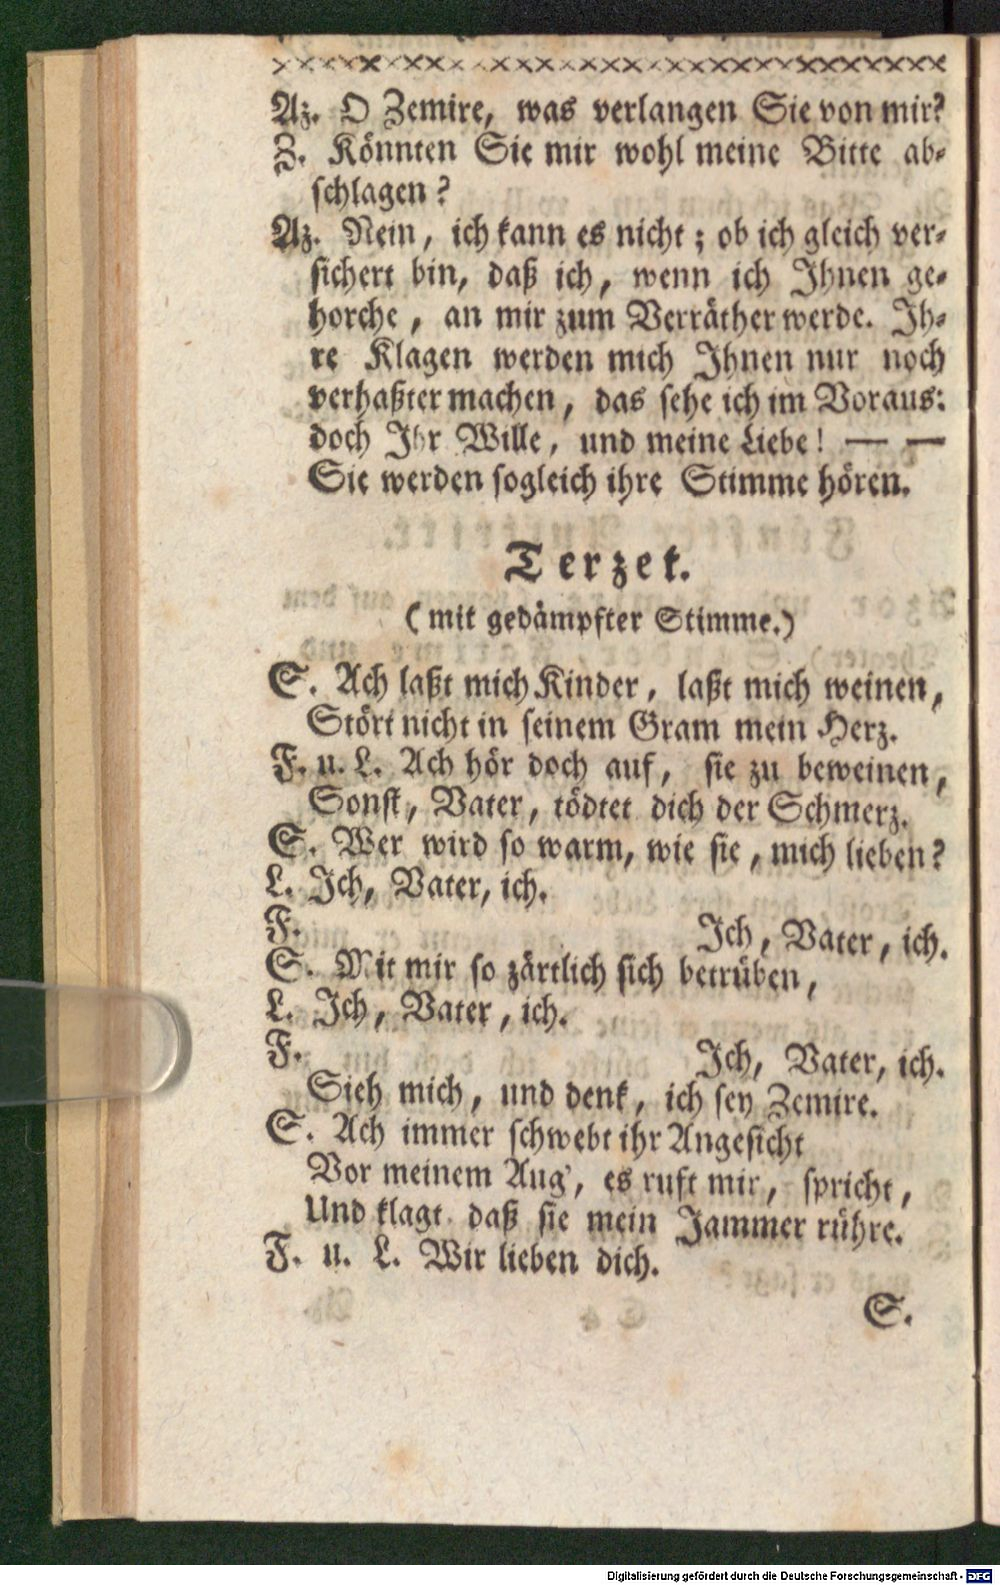 Az. O Zemire, was verlangen Sie von mir?
Z. Könnten Sie mir wohl meine Bitte ab-
schlagen?
Az. Nein, ich kann es nicht; ob ich gleich ver-
sichert bin, daß ich, wenn ich Ihnen ge-
horche, an mir zum Verräther werde. Ih-
re Klagen werden mich Ihnen nur noch
verhaßter machen, das sehe ich im Voraus:
doch Ihr Wille, und meine Liebe! — —
Sie werden sogleich ihre Stimme hören.
Terzet.
(mit gedämpfter Stimme.)
S. Ach laßt mich Kinder, laßt mich weinen,
Stört nicht in seinem Gram mein Herz.
F. u. L. Ach hör doch auf, sie zu beweinen,
Sonst, Vater, tödtet dich der Schmerz.
S. Wer wird so warm, wie sie, mich lieben?
L. Ich, Vater, ich.
F. Ich, Vater, ich.
S. Mit mir so zärtlich sich betrüben,
L. Ich, Vater, ich.
F. Ich, Vater, ich.
Sieh mich, und denk, ich sey Zemire.
S. Ach immer schwebt ihr Angesicht
Vor meinem Aug', es ruft mir, spricht,
Und klagt daß sie mein Jammer rühre.
F. u. L. Wir lieben dich.
S.
Digitalisierung gefördert durch die Deutsche Forschungsgemeinschaft - DFG